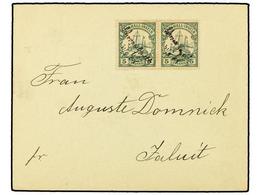 Frau
Auguste Domnick
pr Jaluit